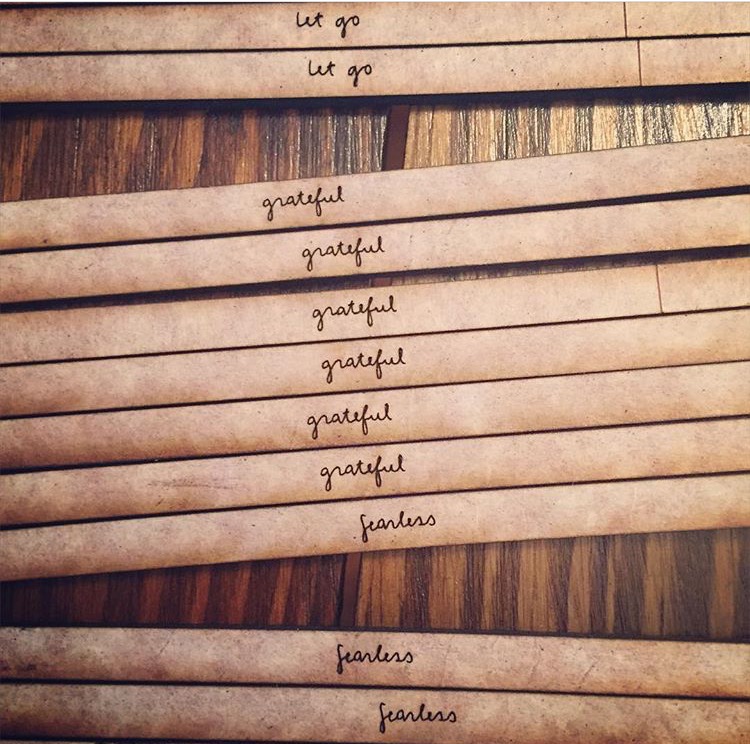 let go
let go
grateful
grateful
grateful
grateful
grateful
grateful
fearless
fearless
fearless